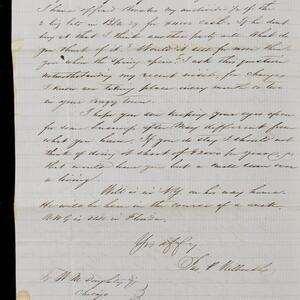 I have offered Rhodes my undivided ½ of the
2 big lots in Blk 29 for $4000 cash. If he dont
buy at that I think another party will. What do
you think of it? Would it sell for more than
you when the Spring opens? I ask this question
notwithstanding my recent visit, for changes
I know are taking place every month or two
in your crazy town.
I hope you are keeping your eyes open
for some business after May different from
what you have. If you do stay I should not
think of doing it short of $2000 per year for
that would leave you but a mile over
a living.
Will is in NY on his way home.
He will be here in the course of a week.
is still in Florida.
Yrs aff
Jas
To W M
Chicago